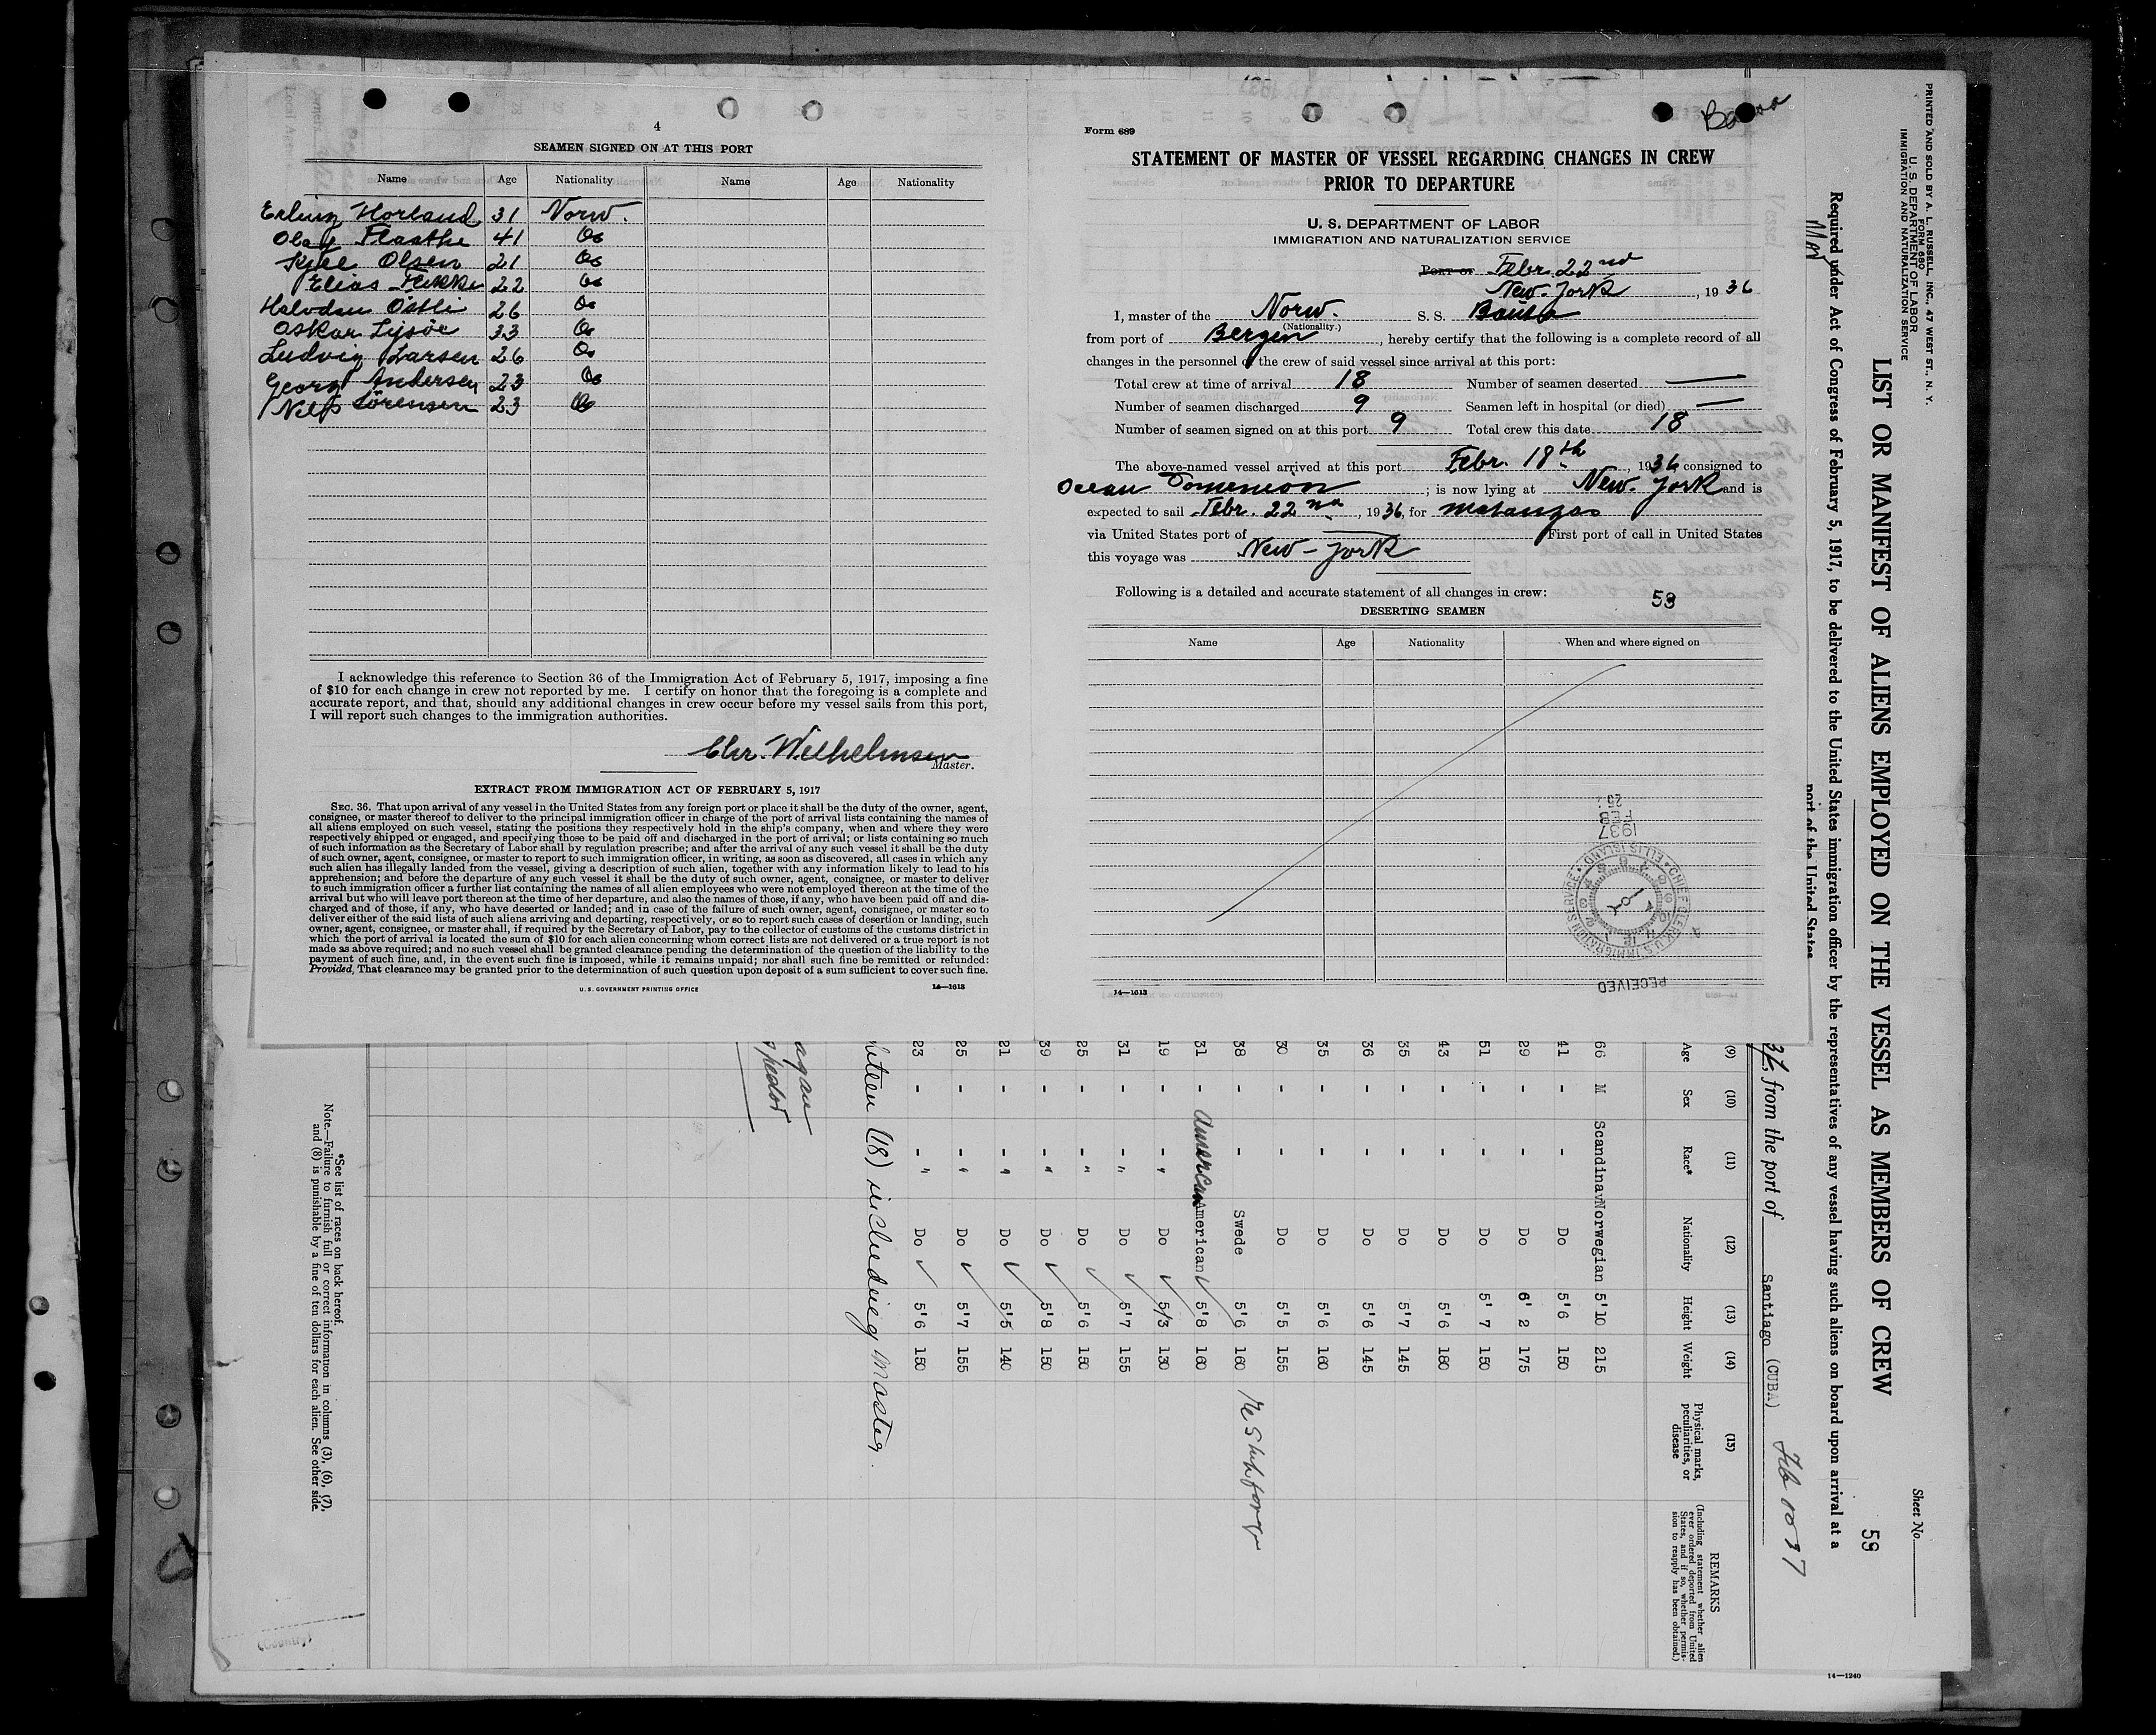 4
SEAMEN SIGNED ON AT THIS PORT
Name Age Nationality Name Age Nationality
Erling Horland 31 Norw.
Olaf Flaathe 41 Do
Kjell Olsen 21 Do
Elias Flikke 22 Do
Halvdan Østli 26 Do
Oskar Lysøe 33 Do
Ludvig Larsen 26 Do
Georg Andersen 23 Do
Nils Sørensen 23 Do
I acknowledge this reference to Section 36 of the Immigration Act of February 5, 1917, imposing a fine
of $10 for each change in crew not reported by me. I certify on honor that the foregoing is a complete and
accurate report, and that, should any additional changes in crew occur before my vessel sails from this port,
I will report such changes to the immigration authorities.
Chr. Wilhelmsen
Master.
EXTRACT FROM IMMIGRATION ACT OF FEBRUARY 5, 1917
SEC. 36. That upon arrival of any vessel in the United States from any foreign port or place it shall be the duty of the owner, agent,
consignee, or master thereof to deliver to the principal immigration officer in charge of the port of arrival lists containing the names of
all aliens employed on such vessel, stating the positions they respectively hold in the ship's company, when and where they were
respectively shipped or engaged, and specifying those to be paid off and discharged in the port of arrival; or lists containing so much
of such information as the Secretary of Labor shall by regulation prescribe; and after the arrival of any such vessel it shall be the duty
of such owner, agent, consignee, or master to report to such immigration officer, in writing, as soon as discovered, all cases in which any
such alien has illegally landed from the vessel, giving a description of such alien, together with any information likely to lead to his
apprehension; and before the departure of any such vessel it shall be the duty of such owner, agent, consignee, or master to deliver
to such immigration officer a further list containing the names of all alien employees who were not employed thereon at the time of the
arrival but who will leave port thereon at the time of her departure, and also the names of those, if any, who have been paid off and dis-
charged and of those, if any, who have deserted or landed; and in case of the failure of such owner, agent, consignee, or master so to
deliver either of the said lists of such aliens arriving and departing, respectively, or so to report such cases of desertion or landing, such
owner, agent, consignee, or master shall, if required by the Secretary of Labor, pay to the collector of customs of the customs district in
which the port of arrival is located the sum of $10 for each alien concerning whom correct lists are not delivered or a true report is not
made as above required; and no such vessel shall be granted clearance pending the determination of the question of the liability to the
payment of such fine, and, in the event such fine is imposed, while it remains unpaid; nor shall such fine be remitted or refunded:
Provided, That clearance may be granted prior to the determination of such question upon deposit of a sum sufficient to cover such fine.
U. S. GOVERNMENT PRINTING OFFICE 14—1613
Form 689
STATEMENT OF MASTER OF VESSEL REGARDING CHANGES IN CREW
PRIOR TO DEPARTURE
U. S. DEPARTMENT OF LABOR
IMMIGRATION AND NATURALIZATION SERVICE
Port of Febr. 22nd
New-York, 1936
I, master of the Norw. S. S.
(Nationality.)
from port of Bergen, hereby certify that the following is a complete record of all
changes in the personnel of the crew of said vessel since arrival at this port:
Total crew at time of arrival 18 Number of seamen deserted —
Number of seamen discharged 9 Seamen left in hospital (or died) —
Number of seamen signed on at this port 9 Total crew this date 18
The above-named vessel arrived at this port Febr. 18th, 1936, consigned to
Ocean Dominion; is now lying at New-York and is
expected to sail Febr. 22nd, 1936, for Matanzas
via United States port of — First port of call in United States
this voyage was New-York
Following is a detailed and accurate statement of all changes in crew:
53
DESERTING SEAMEN
Name Age Nationality When and where signed on
1937
FEB
25
CHIEF CLERK U.S. IMMIGRATION SERVICE • ELLIS ISLAND •
RECEIVED
14—1613
PRINTED AND SOLD BY A. L. RUSSELL, INC., 47 WEST ST., N. Y.
FORM 680
U. S. DEPARTMENT OF LABOR
IMMIGRATION AND NATURALIZATION SERVICE
Sheet No.
LIST OR MANIFEST OF ALIENS EMPLOYED ON THE VESSEL AS MEMBERS OF CREW
59
Required under Act of Congress of February 5, 1917, to be delivered to the United States immigration officer by the representatives of any vessel having such aliens on board upon arrival at a
port of the United States
from the port of Santiago (CUBA) Feb 1937
(9) (10) (11) (12) (13) (14) (15)
Age Sex Race* Nationality Height Weight Physical marks, peculiarities, or disease
REMARKS
(Including statement whether alien ever ordered deported from United States, and if so, whether permission to reapply has been obtained.)
66 M Scandinav Norwegian 5'10 215
41 - - Do 5'6 150
29 - - Do 6'2 175
51 - - Do 5'7 150
43 - - Do 5'6 160
35 - - Do 5'7 145
36 - - Do 5'6 145
35 - - Do 5'6 160
30 - - Do 5'5 155
38 - - Swede 5'6 160
31 - American American 5'8 160
19 - - " Do 5'3 130
31 - - " Do 5'7 155
25 - - " Do 5'6 150
39 - - " Do 5'8 150
21 - - " Do 5'5 140
25 - - " Do 5'7 155
23 - - " Do 5'6 150
(18) including Master.
*See list of races on back hereof.
Note.—Failure to furnish full or correct information in columns (3), (6), (7),
and (8) is punishable by a fine of ten dollars for each alien. See other side.
14—1240